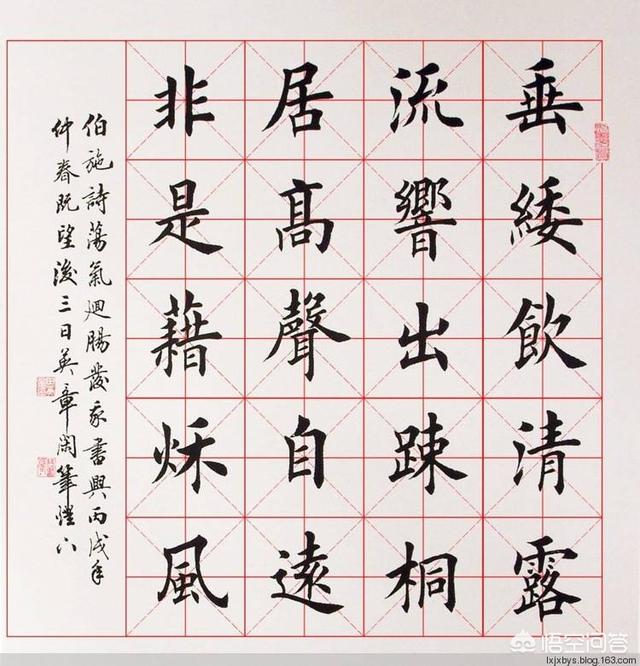 垂緌飲清露
流響出踈桐
居髙聲自遠
非是藉秌風
伯施詩蕩氣迴腸發我書興丙戌年
仲春既望後三日英章閑筆燈下
悟空问答
lxjxbys.blog.163.com